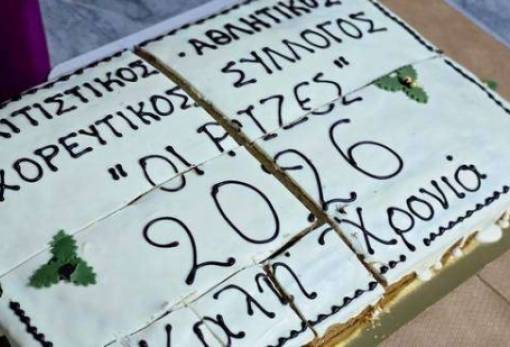 ΛΙΤΙΣΤΙΚΟΣ · ΑΘΛΗΤΙΚΟΣ
ΧΟΡΕΥΤΙΚΟΣ ΣΥΛΛΟΓΟΣ
"ΟΙ ΡΙΤΖΕΣ"
2026
Καλή Χρονιά